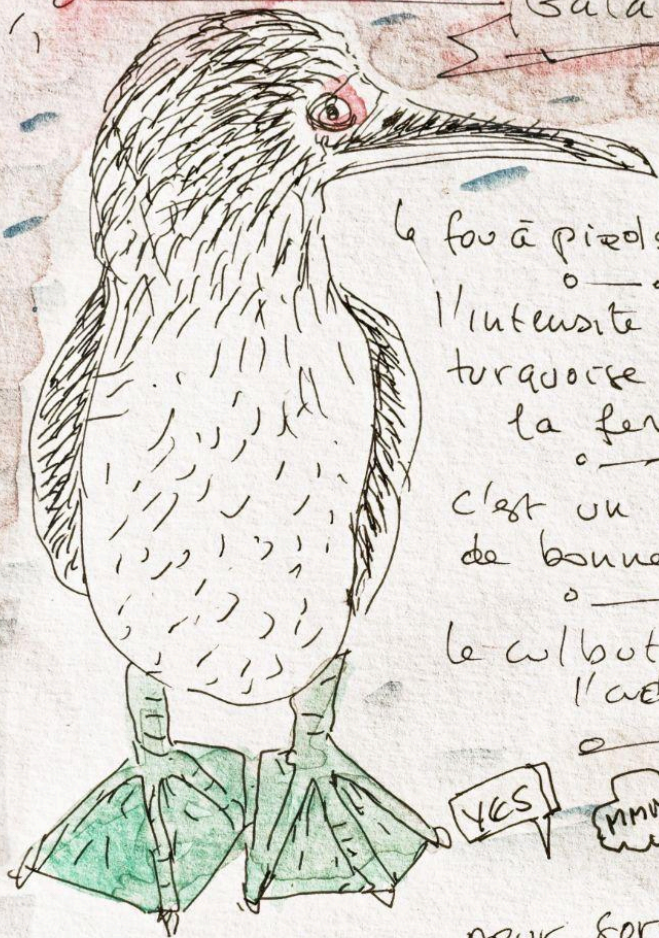 Gala
le fou à pieds
l'intensité
turquoise
la fem
c'est un
de bonne
le culbut
l'avE
YES
MMM
pour for